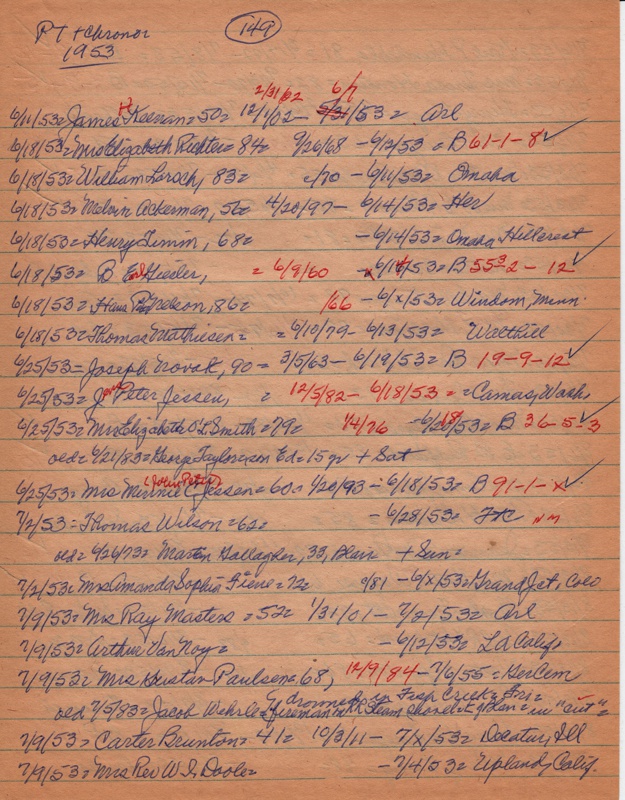 PT + Chronor 149
1953
2/31/02 6/7
6/11/53= James H Keenan= 50= 12/1/02- 5/31/53= Arl
6/18/53= Mrs Elizabeth Richter= 84= 9/26/68 - 6/12/53 = B 61-1-8 ✓
6/18/53= William Lorsch, 83= -/70 - 6/11/53= Omaha
6/18/53= Melvin Ackerman, 56= 4/20/97- 6/14/53= Her
6/18/53= Henry Timm, 68= - 6/14/53= Omaha Hillcrest
6/18/53= B Earl Giesler, = 6/9/60 - 6/14/53= B 55-2-12 ✓
6/18/53= Hans Nelson, 86= /66 - 6/x/53= Windom, Minn.
6/18/53= Thomas Mathiesen= = 6/10/79- 6/13/53= Walthill
6/25/53= Joseph Novak, 90= 3/5/63- 6/19/53= B 19-9-12 ✓
6/25/53= Peter Jessen, = 12/5/82- 6/18/53= = Camas, Wash.
6/25/53= Mrs Elizabeth O'L. Smith= 79= 1/4/76 -6/18/53= B 36-5-3 ✓
oed= 6/21/83= George Taylor Ed= 15 yr + Sat
(John Peter)
6/25/53= Mrs Minnie C. Jessen= 60= 1/20/93- 6/18/53= B 91-1-x ✓
7/2/53= Thomas Wilson= 62= - 6/28/53= FtC NM
oed= 4/26/73= Martin Gallagher, 33, Blair + Sun=
7/2/53= Mrs Amanda Sophia Fiene= 72= °/81 - 6/x/53= Grand Jct, Colo
7/9/53= Mrs Ray Masters= 52= 1/31/01- 7/2/53= Arl
7/9/53= Arthur Van Noy= - 6/12/53= LA Calif=
7/9/53= Mrs Gustav Paulsen= 68, 12/9/84- 7/6/55= Her Cem
drowned in Fish Creek= Fri=
oed 7/5/83= Jacob Wehrle= fireman on Steam shovel of Blair= in "cut"=
7/9/53= Carter Brunton= 41= 10/3/11- 7/x/53= Decatur, Ill
7/9/53= Mrs Rev W. I. Dooley - 7/4/53= Upland, Calif.